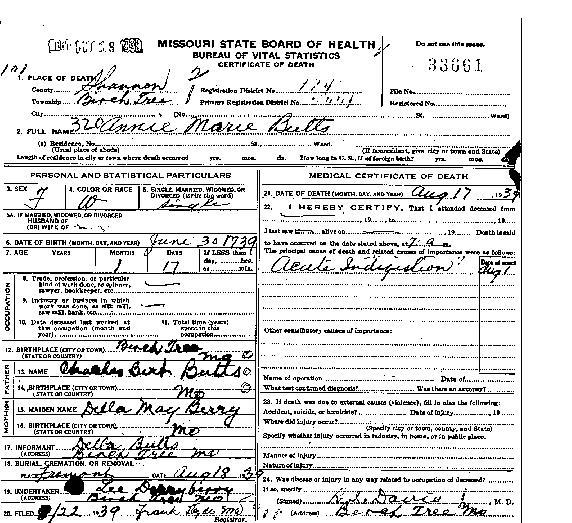 MISSOURI STATE BOARD OF HEALTH
BUREAU OF VITAL STATISTICS
CERTIFICATE OF DEATH
Do not use this space.
33661
1. PLACE OF DEATH
County Shannon
Registration District No.
File No.
Township Birch Tree
Primary Registration District No.
Registered No.
City
(No.
St.
Ward)
2. FULL NAME Annie Marie Butts
(a) Residence, No.
St.
Ward.
(Usual place of abode)
(If nonresident, give city or town and State)
Length of residence in city or town where death occurred yrs. mos. ds. How long in U. S., if of foreign birth? yrs. mos. ds.
PERSONAL AND STATISTICAL PARTICULARS
3. SEX F
4. COLOR OR RACE W
5. SINGLE, MARRIED, WIDOWED, OR DIVORCED (write the word) Single
5A. IF MARRIED, WIDOWED, OR DIVORCED
HUSBAND OF
(OR) WIFE OF
6. DATE OF BIRTH (MONTH, DAY, AND YEAR) June 30 1939
7. AGE YEARS MONTHS DAYS If LESS than 1
1 17
OCCUPATION
8. Trade, profession, or particular
kind of work done, as spinner,
sawyer, bookkeeper, etc.
9. Industry or business in which
work was done, as silk mill,
saw mill, bank, etc.
10. Date deceased last worked at
this occupation (month and
year)
11. Total time (years)
spent in this
occupation
12. BIRTHPLACE (CITY OR TOWN) Birch Tree
(STATE OR COUNTRY) Mo
FATHER
13. NAME Charles Burt Butts
14. BIRTHPLACE (CITY OR TOWN)
(STATE OR COUNTRY) Mo
MOTHER
15. MAIDEN NAME Della May Berry
16. BIRTHPLACE (CITY OR TOWN)
(STATE OR COUNTRY) Mo
17. INFORMANT Della Butts
(ADDRESS) Birch Tree Mo
18. BURIAL, CREMATION, OR REMOVAL
PLACE Fremont DATE Aug 18 39
19. UNDERTAKER Lee
(ADDRESS) Birch Tree Mo
20. FILED /22 1939 Frank Mo
Registrar.
MEDICAL CERTIFICATE OF DEATH
21. DATE OF DEATH (MONTH, DAY, AND YEAR) Aug 17 1939
22. I HEREBY CERTIFY, That I attended deceased from
, 19 , to , 19
I last saw h alive on , 19 Death is said
to have occurred on the date stated above, at 7 a m.
The principal cause of death and related causes of importance were as follows:
Date of onset
Acute Indigestion Aug 1
Other contributory causes of importance:
Name of operation Date of
What test confirmed diagnosis? Was there an autopsy?
23. If death was due to external causes (violence), fill in also the following:
Accident, suicide, or homicide? Date of injury , 19
Where did injury occur?
(Specify city or town, county, and State)
Specify whether injury occurred in industry, in home, or in public place.
Manner of injury
Nature of injury
24. Was disease or injury in any way related to occupation of deceased?
If so, specify
(Signed) Davis , M. D.
(Address) Birch Tree Mo